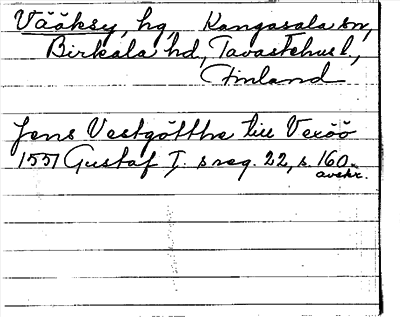 Vääksy, hg Kangasala sn,
Birkala hd, Tavastehus l,
Finland
Jens Vestgötthe till Vexöö
1551 Gustaf I. s reg. 22, s. 160.
avskr.